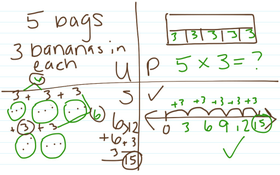 5 bags
3 bananas in
each
U
3 3 3 3 3
P 5 × 3 = ?
3 + 3 + 3
+ 3 + 3
6
S
6 12
+6 +3
3 15
+3 +3 +3 +3 +3
0 3 6 9 12 15